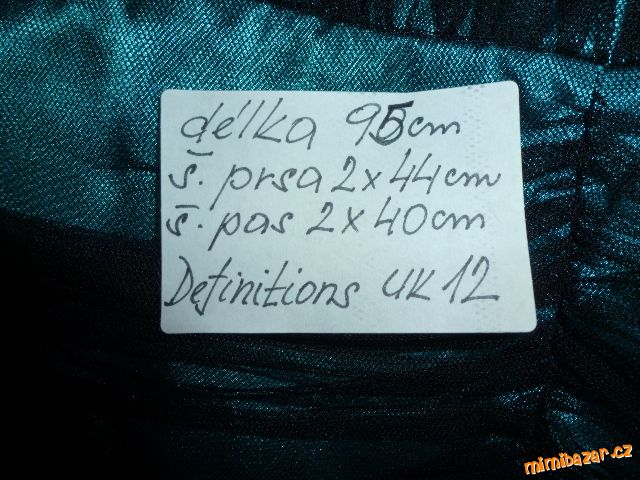 délka 95cm
š. prsa 2x44cm
š. pas 2x40cm
Definitions UK 12
mimibazar.cz